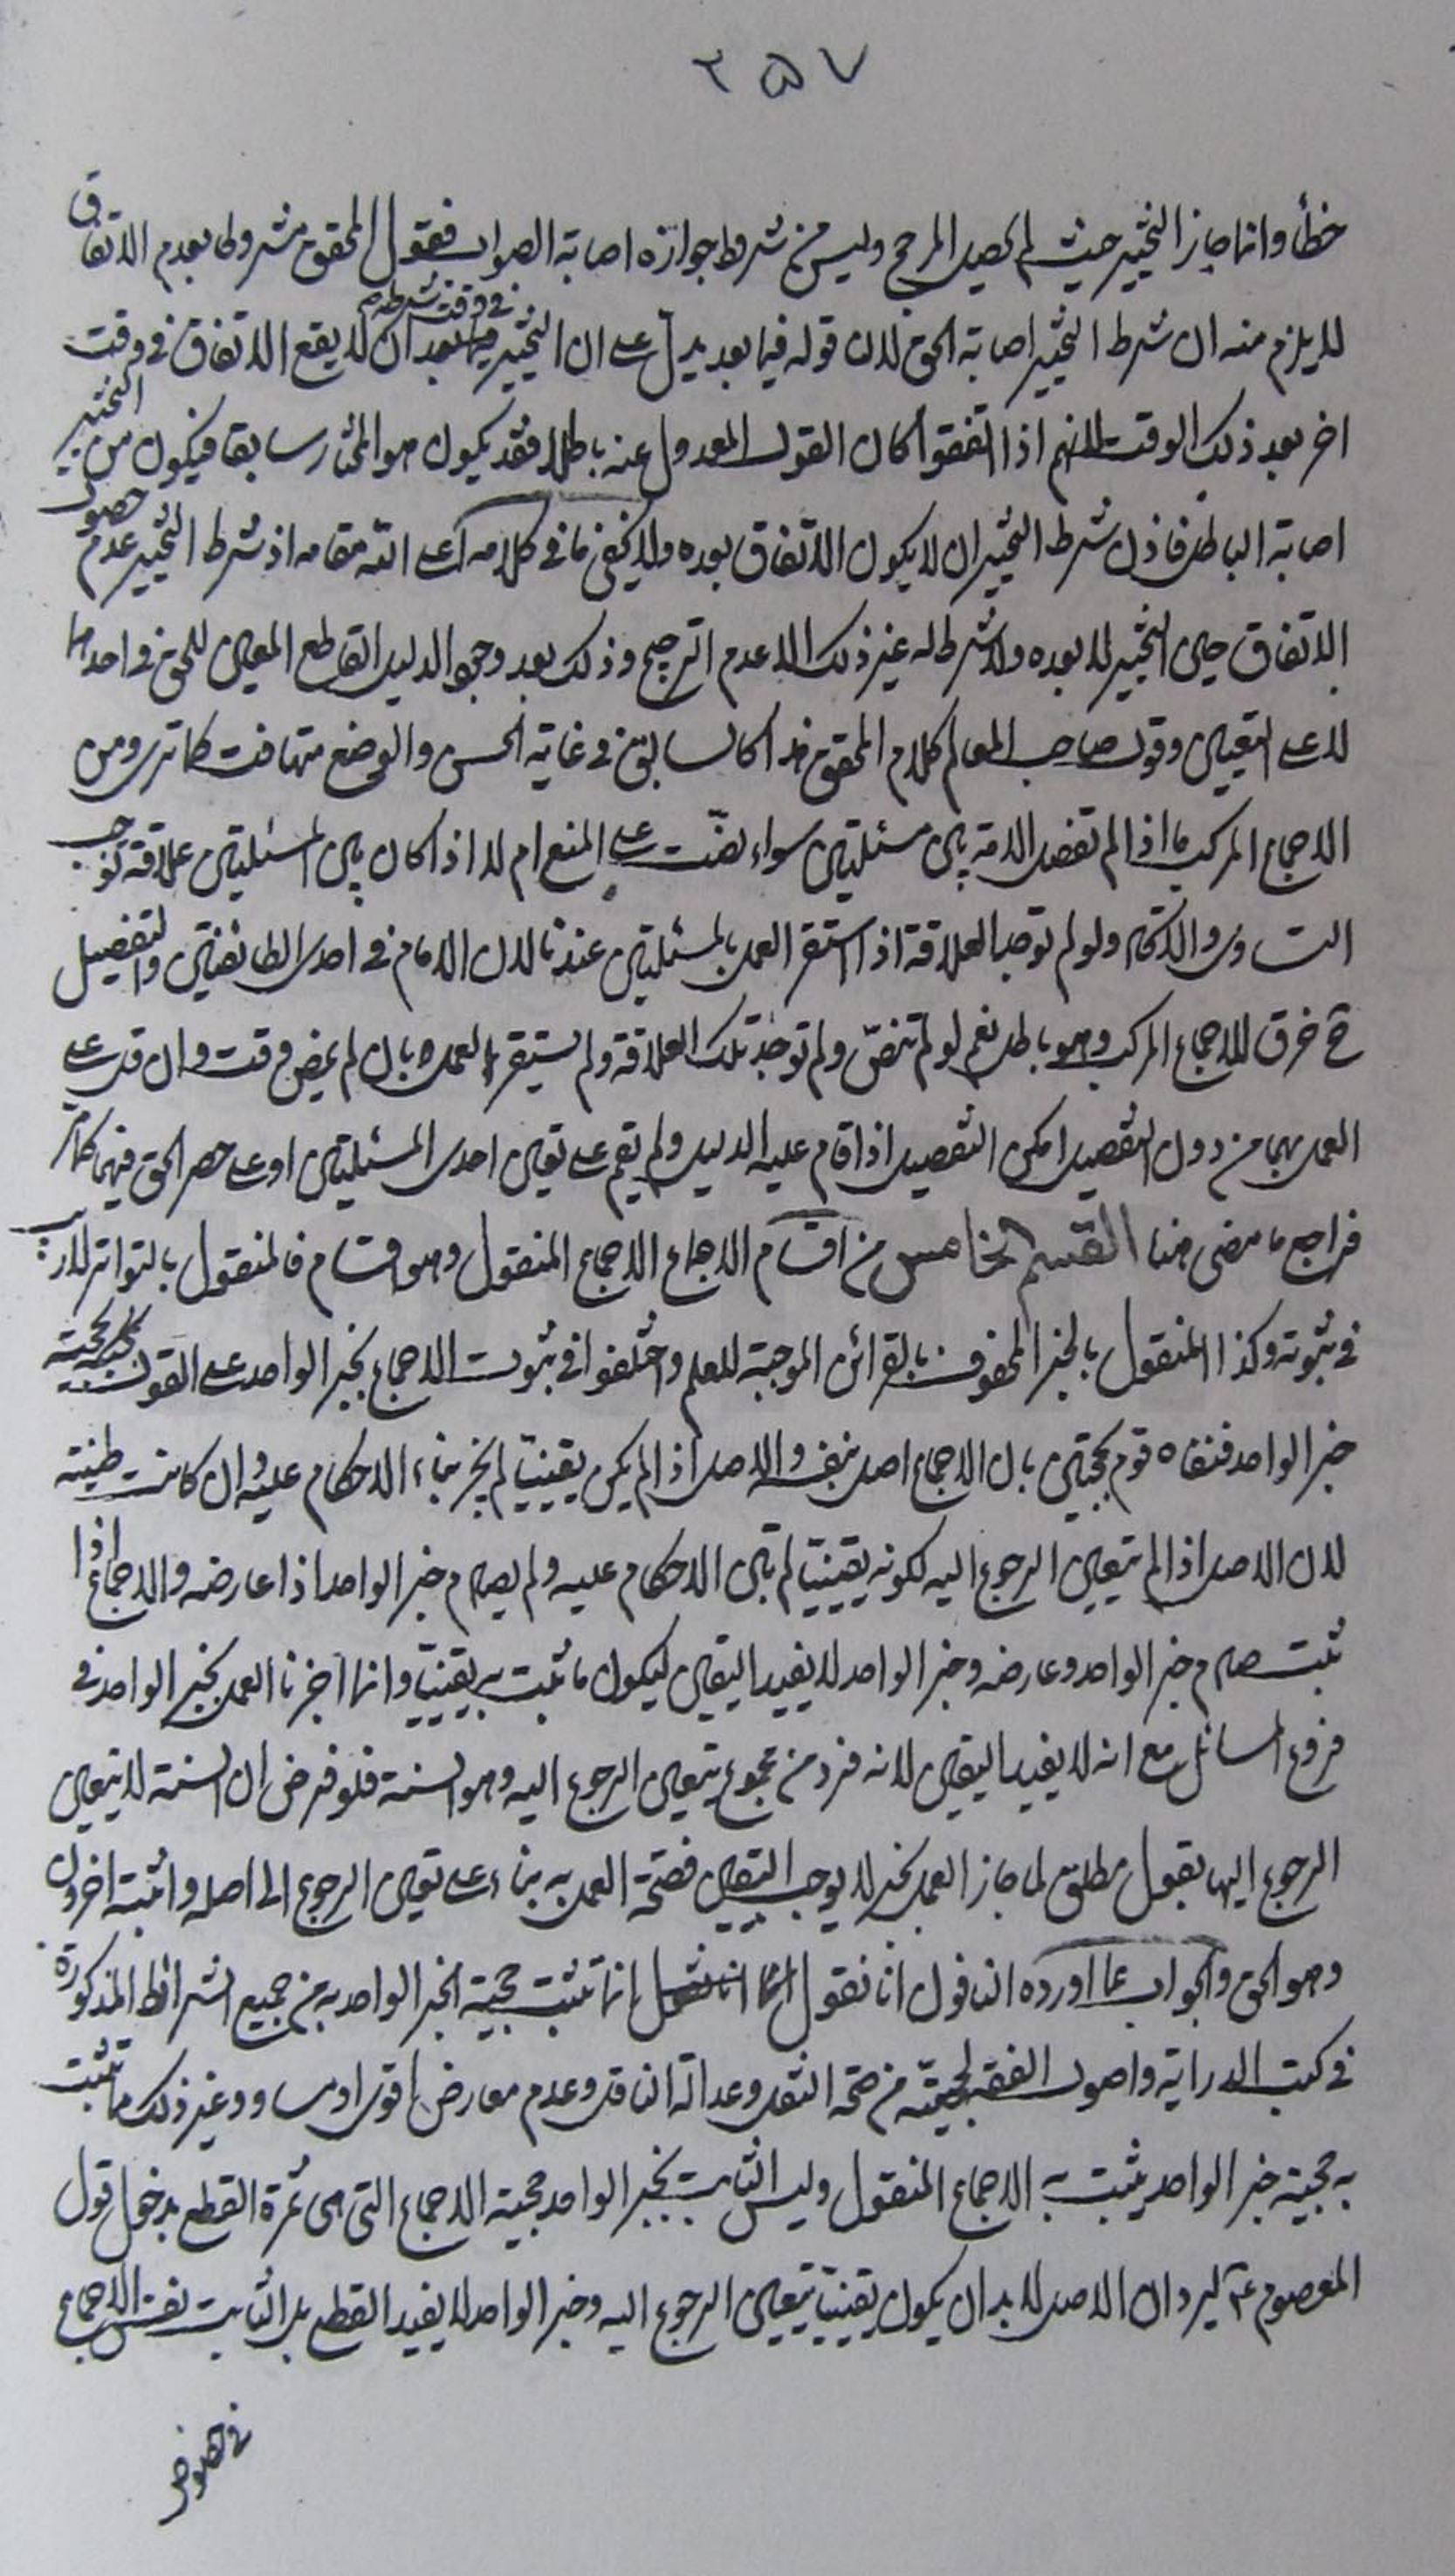 ٢٥٧
خطأ وانما جاز التخيير حيث لم يحصل المرجح وليس من شرط جوازه اصابة الصواب فقول المحقق مشروط بعدم الاتفاق
لا يلزم منه ان شرط التخيير اصابة الحق لان قوله فيما بعد يدل على ان التخيير في وقت شرطه ان لا يقع الاتفاق في وقت
اخر بعد ذلك الوقت لانهم اذا اتفقوا كان القول المعدول عنه باطلا فقد يكون هو المختار سابقا فيكون من التخيير
اصابة الباطل فاذن شرط التخيير ان لا يكون الاتفاق بعده ولا يخفى ما في كلامه اعلى الله مقامه اذ شرط التخيير عدم حصول
الاتفاق حين التخيير لا بعده ولا شرط له غير ذلك الا عدم الترجيح وذلك بعد وجود الدليل القاطع المعين للحق في احدهما
لا على التعيين وقول صاحب المعالم كلام المحقق هذا كالسابق في غاية الحسن والوضع متهافت كما ترى ومن
الاجماع المركب ما اذا لم تفصل الامة بين مسئلتين سواء نصّت على المنع ام لا اذا كان بين المسئلتين علاقة توجب
التساوى والاتحاد ولو لم توجد العلاقة اذا استقر العمل بالمسئلتين عندنا لان الامام في احدى الطائفتين والتفصيل
ح خرق للاجماع المركب وهو باطل نعم لو لم تنصّ ولم توجد تلك العلاقة ولم يستقر العمل بان لم يمض وقت وان قل على
العمل بهما من دون التفصيل امكن التفصيل اذا قام عليه الدليل ولم يقم على تعيين احدى المسئلتين او على حصر الحق فيهما كما مرّ
فراجع ما مضى هنا القسم الخامس من اقسام الاجماع الاجماع المنقول وهو اقسام فالمنقول بالتواتر لا ريب
في ثبوته وكذا المنقول بالخبر المحفوف بالقرائن الموجبة للعلم واختلفوا في ثبوت الاجماع بخبر الواحد على القول بحجية
خبر الواحد فنفاه قوم محتجين بان الاجماع اصل بنفسه والاصل اذا لم يكن يقينيّا لم يجز بناء الاحكام عليه وان كانت ظنية
لان الاصل اذا لم يتعين الرجوع اليه لكونه يقينيّا لم تبن الاحكام عليه ولم يصادم خبر الواحد اذا عارضه والاجماع اذا
ثبت صادم خبر الواحد وعارضه وخبر الواحد لا يفيد اليقين ليكون ما ثبت به يقينيّا وانما اجزنا العمل بخبر الواحد في
فروع المسائل مع انه لا يفيد اليقين لانه فرد من مجموع يتعين الرجوع اليه وهو السنة فلو فرض ان السنة لا يتعين
الرجوع اليها بقول مطلق لما جاز العمل بخبر لا يوجب اليقين فصحّة العمل به بناء على تعين الرجوع الى اصله واثبته اخرون
وهو الحق والجواب عما اورده النافون انا نقول انما تثبت حجية الخبر الواحد به من جميع الشرائط المذكورة
في كتب الدراية واصول الفقه لحجيّته من صحة النقل وعدالة الناقل وعدم معارض اقوى او مساو وغير ذلك ما تثبت
به حجية خبر الواحد يثبت به الاجماع المنقول وليس الثابت بخبر الواحد حجية الاجماع التي هى ثمرة القطع بدخول قول
المعصوم عليه ليرد ان الاصل لابد ان يكون يقينيّا يتعين الرجوع اليه وخبر الواحد لا يفيد القطع بل الثابت نفس الاجماع